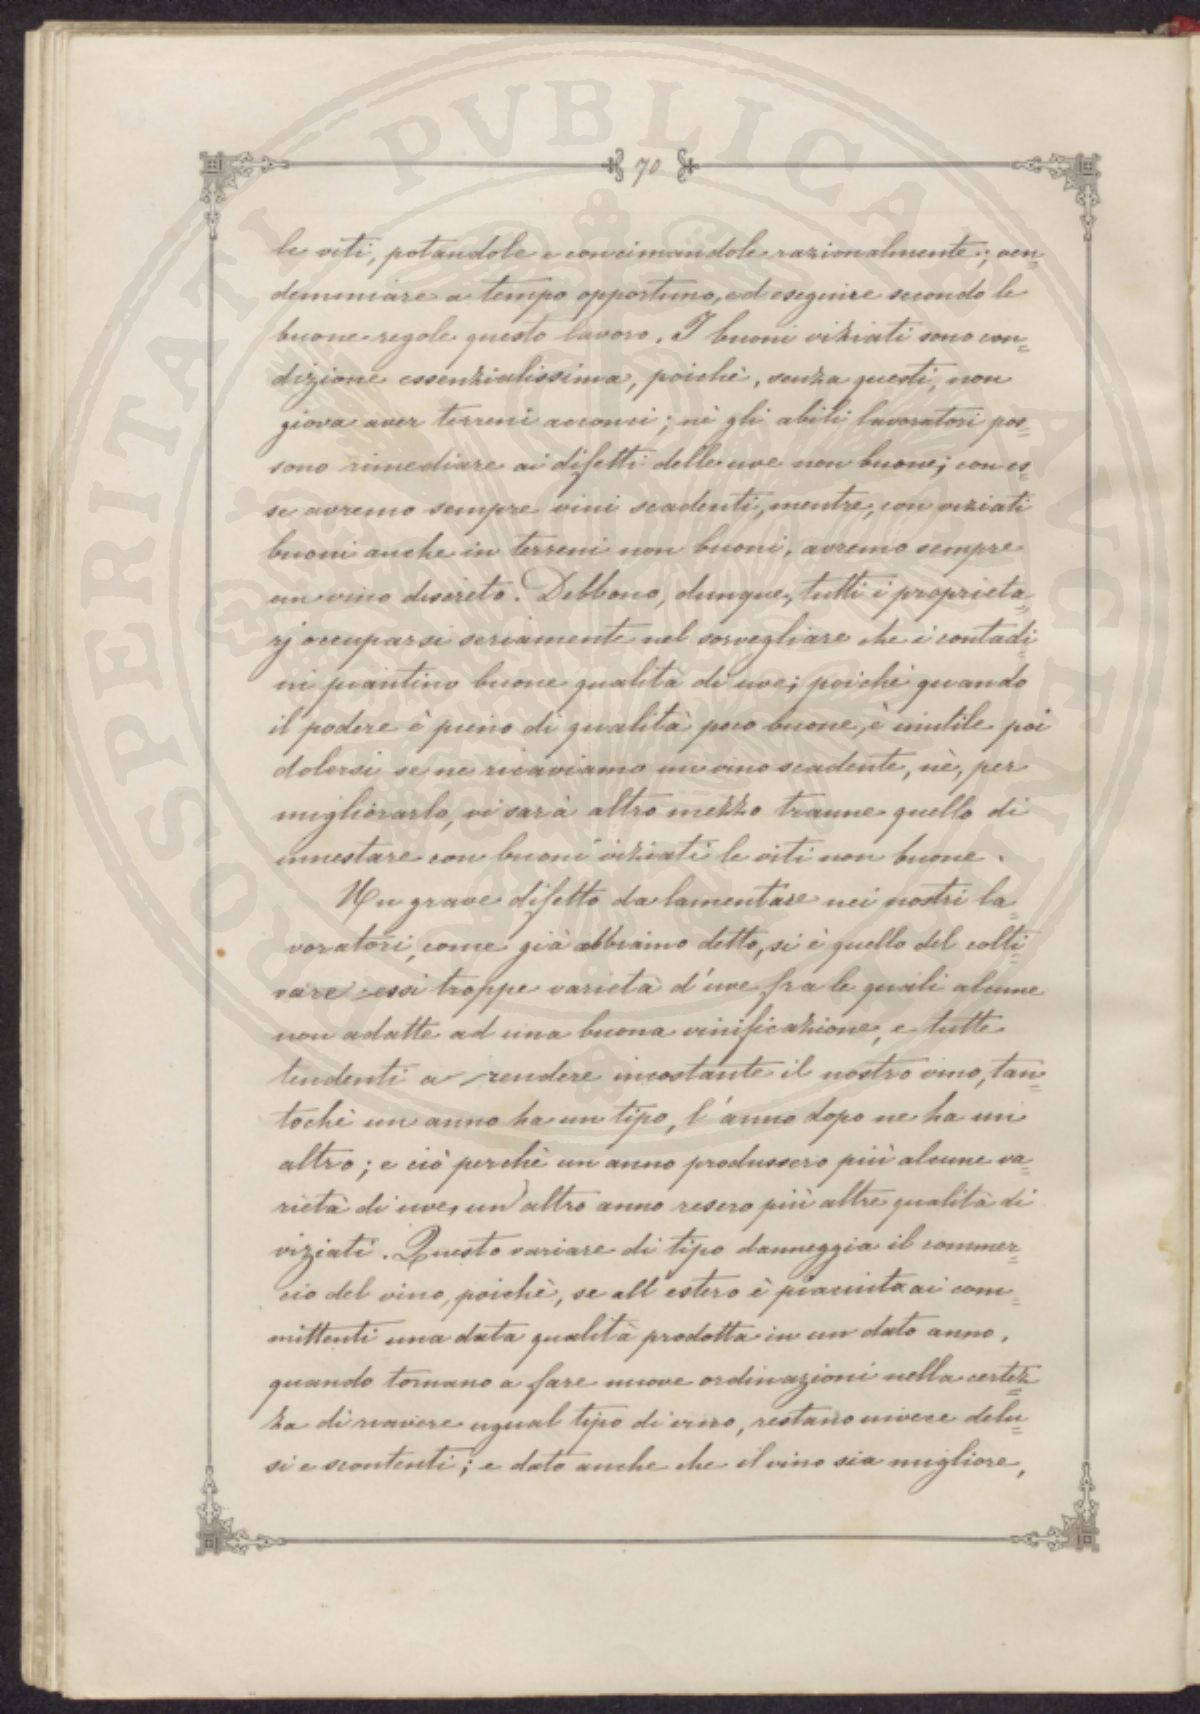 70
le viti, potandole e concimandole razionalmente; ven=
demmiare a tempo opportuno, ed eseguire secondo le
buone regole questo lavoro. I buoni viziati sono con=
dizione essenzialissima, poichè, senza questi, non
giova aver terreni acconci; nè gli abili lavoratori pos=
sono rimediare ai difetti delle uve non buone; con es=
se avremo sempre vini scadenti, mentre, con viziati
buoni anche in terreni non buoni, avremo sempre
un vino discreto. Debbono, dunque, tutti i proprieta=
rj occuparsi seriamente nel sorvegliare che i contadi=
ni piantino buone qualità di uve; poichè quando
il podere è pieno di qualità poco buone, è inutile poi
dolersi se ne ricaviamo un vino scadente, nè, per
migliorarlo, vi sarà altro mezzo tranne quello di
innestare con buoni viziati le viti non buone.
Un grave difetto da lamentare nei nostri la=
voratori, come già abbiamo detto, si è quello del colti=
vare essi troppe varietà d'uve fra le quali alcune
non adatte ad una buona vinificazione, e tutte
tendenti a rendere incostante il nostro vino, tan=
tochè un anno ha un tipo, l'anno dopo ne ha un
altro; e ciò perchè un anno produssero più alcune va=
rietà di uve, un altro anno resero più altre qualità di
viziati. Questo variare di tipo danneggia il commer=
cio del vino, poichè, se all'estero è piaciuta ai com=
mittenti una data qualità prodotta in un dato anno,
quando tornano a fare nuove ordinazioni nella certez=
za di riavere ugual tipo di vino, restano invece delu=
si e scontenti; e dato anche che il vino sia migliore,
PROSPERITATI PVBLICAE AVGENDAE